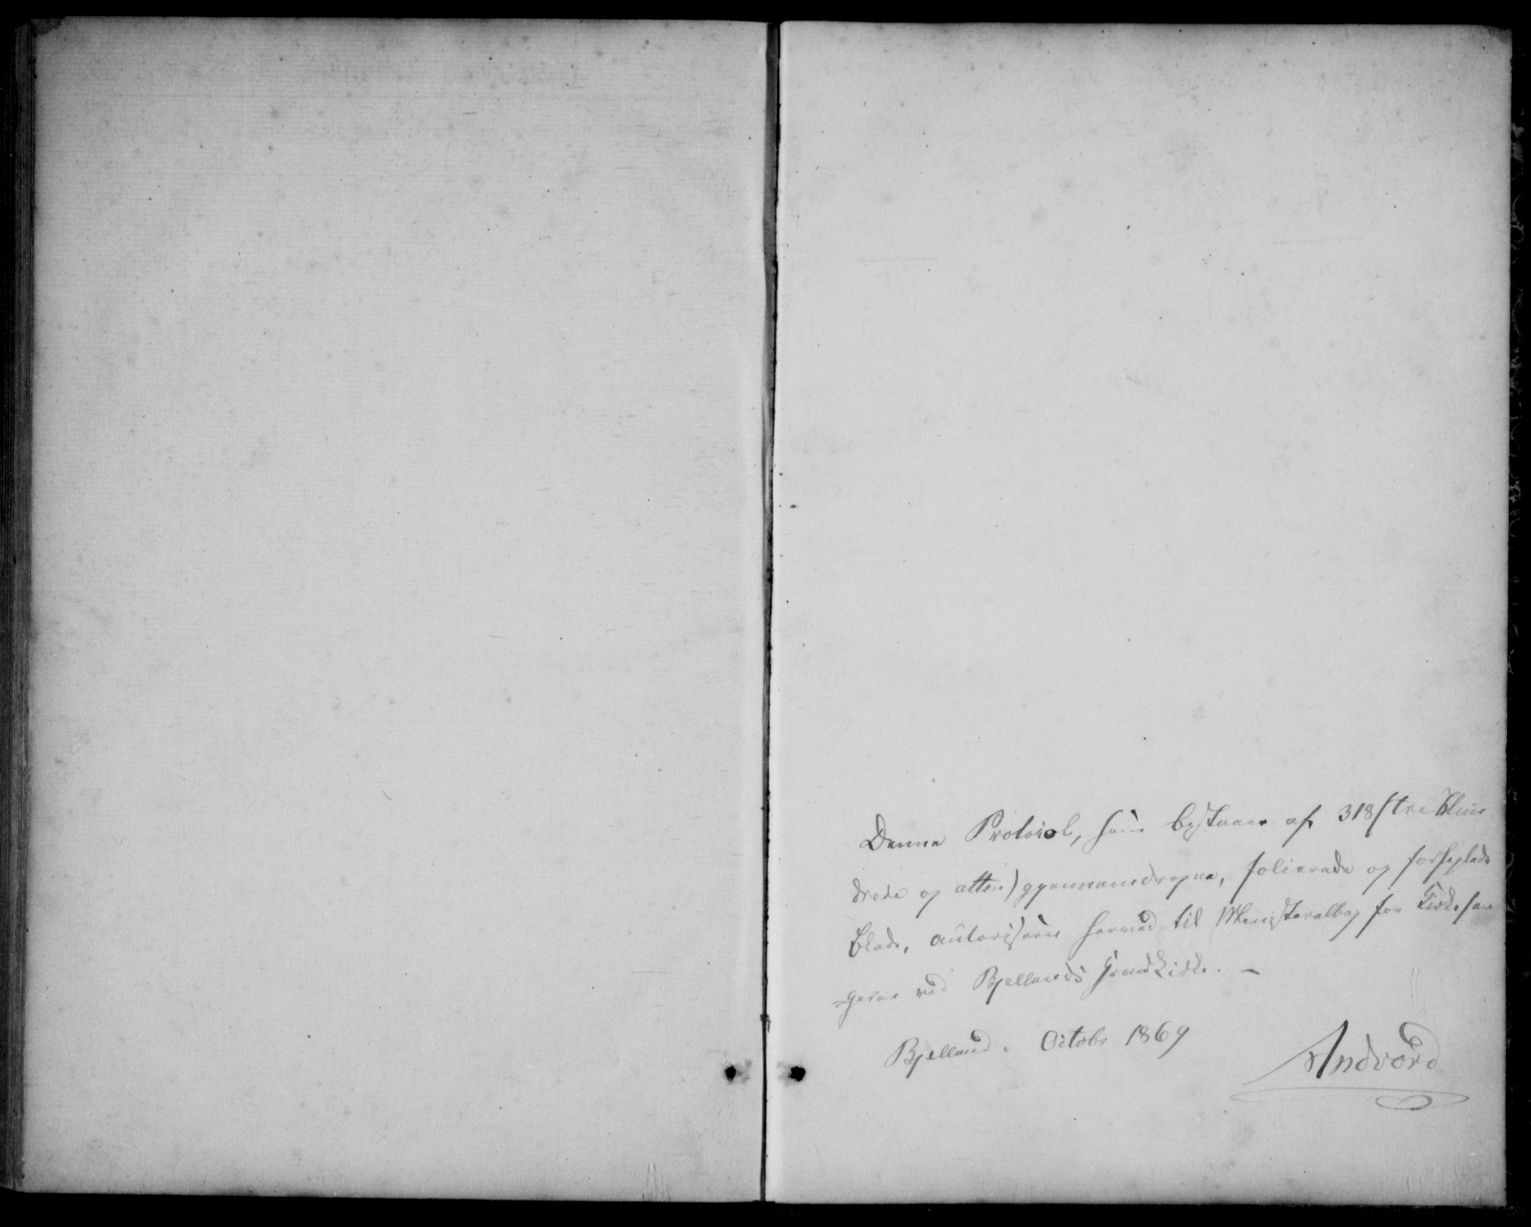 Denne Protocol, som bestaaer af 318 /tre Hun
drede og atten/ gjennemdragne, folierede og forseglede
Blade, autoriseres herved til Ministerialbog for Kirkesan
geren ved Bjellands Kirke. —
Bjelland. Octobr 1869
Andvord